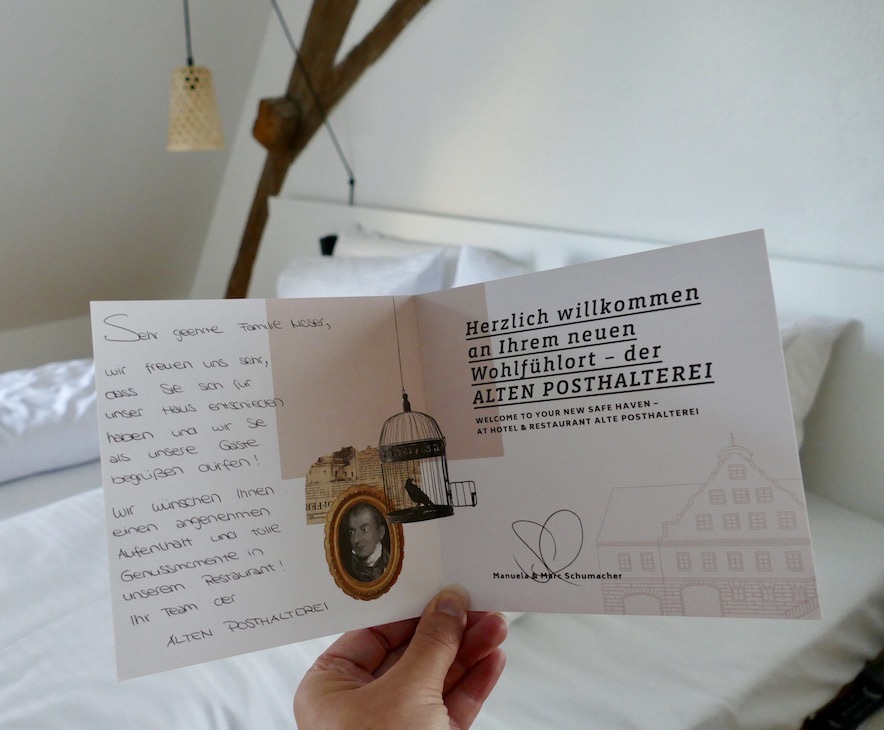 Sehr geehrte Familie Moser,
wir freuen uns sehr,
dass Sie sich für
unser Haus entschieden
haben und wir Sie
als unsere Gäste
begrüßen dürfen!
Wir wünschen Ihnen
einen angenehmen
Aufenthalt und tolle
Genussmomente in
unserem Restaurant!
Ihr Team der
ALTEN POSTHALTEREI
Herzlich willkommen
an Ihrem neuen
Wohlfühlort – der
ALTEN POSTHALTEREI
WELCOME TO YOUR NEW SAFE HAVEN –
AT HOTEL & RESTAURANT ALTE POSTHALTEREI
Manuela & Marc Schumacher